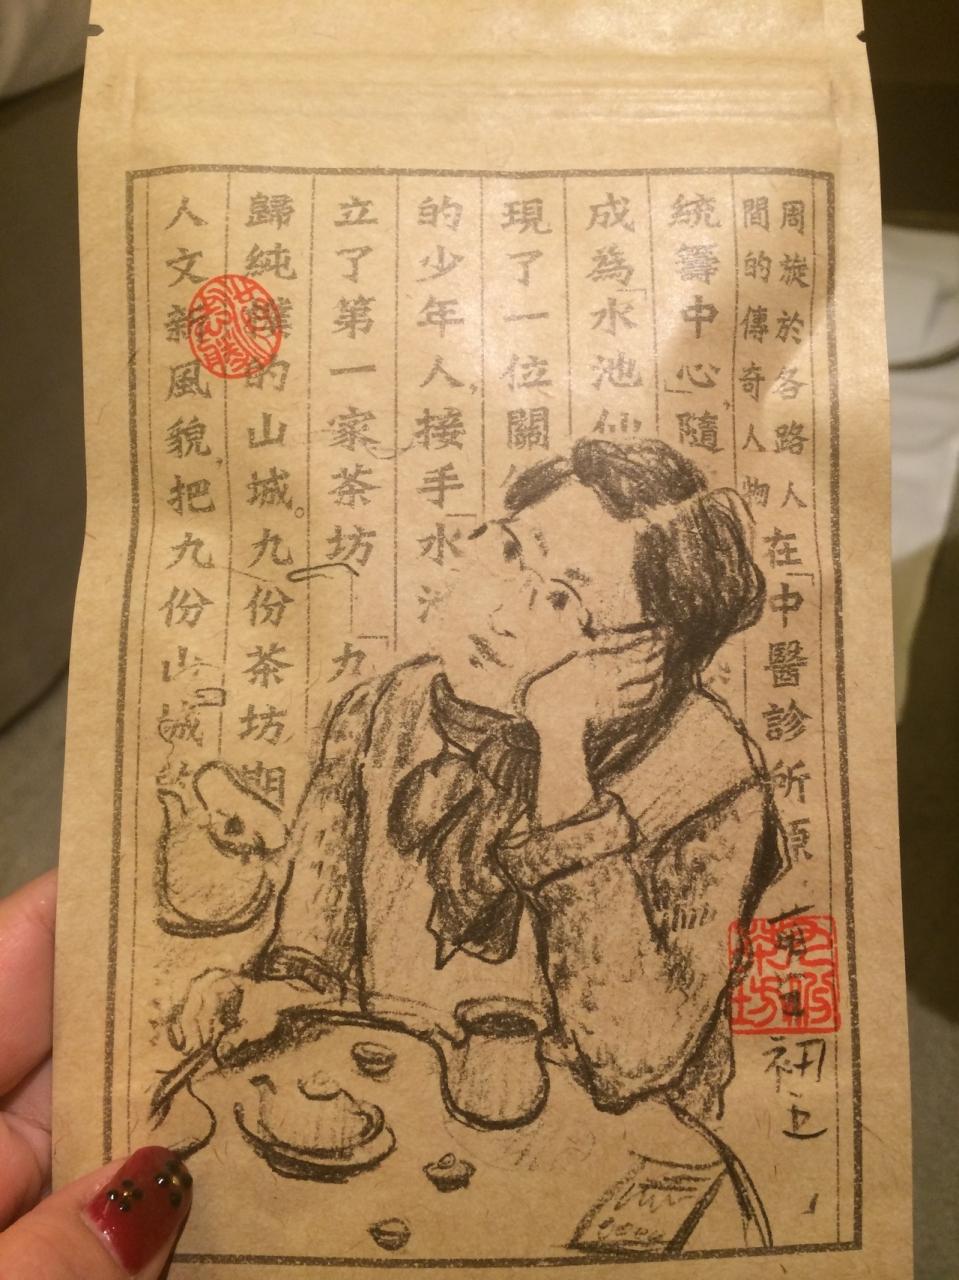 周旋於各路人
間的傳奇人物
在「中醫診所原
統籌中心」,隨
成為「水池仙
現了一位關
的少年人,接手「水
立了第一家茶坊「九
歸純樸的山城。九份茶坊期
人文新風貌,把九份山城
洪志勝
九份茶坊